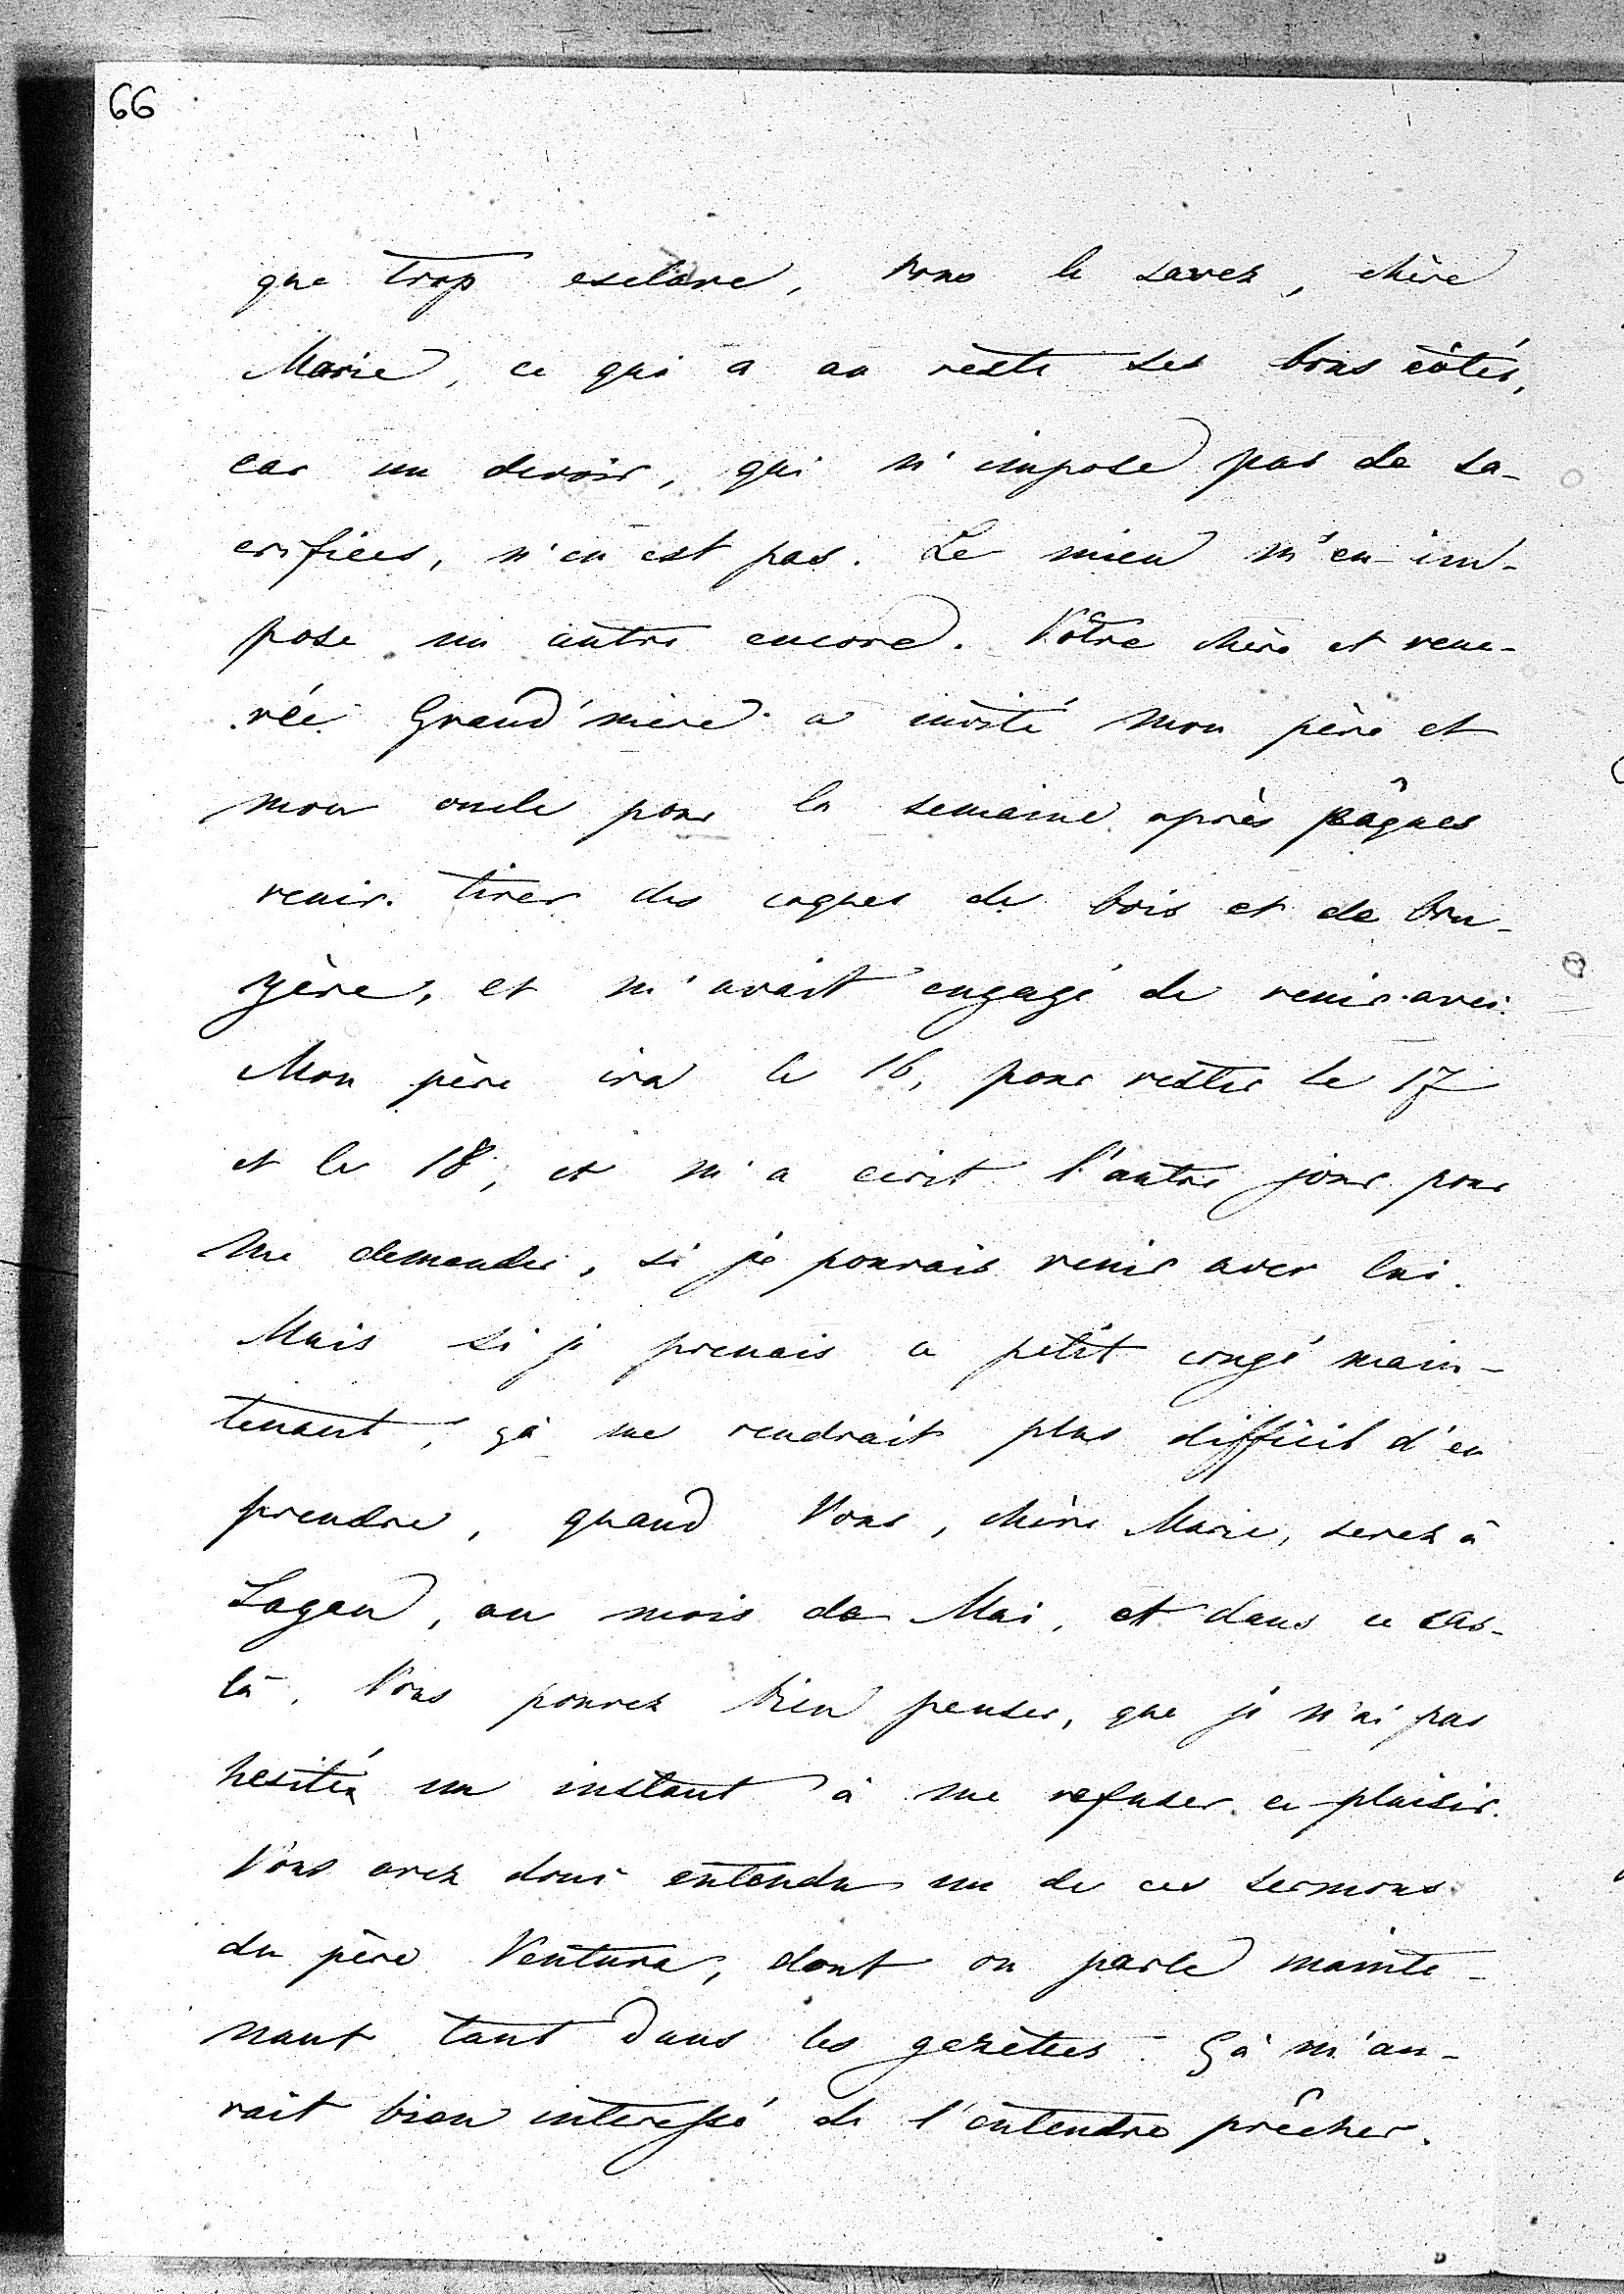 66
que trop esclave, vous le savez, chère
Marie, ce qui a au reste ses bons côtés,
car un devoir, qui n'impose pas de sa-
crifices, n'en est pas. Le mien m'en im-
pose un autre encore. Votre chère et vene-
rée Grand'mère a invité mon père et
mon oncle pour la semaine après pâques
venir tirer des coques de bois et de bru-
yère, et m'avait engagé de venir avec.
Mon père ira le 16, pour rester le 17
et le 18, et m'a écrit l'autre jour pour
me demander, si je pourrais venir avec lui.
Mais si je prenais ce petit congé main-
tenant, çà me rendrait plus difficil d'en
prendre, quand Vous, chère Marie, serez à
Sagan, au mois de Mai, et dans ce cas-
là. Vous pouvez bien penser, que je n'ai pas
hesité un instant à me refuser ce plaisir.
Vous avez donc entendu un de ces sermons
du père Ventura, dont on parle mainte-
nant tant dans les gazèttes. Çà m'au-
rait bien interessé de l'entendre prêcher.